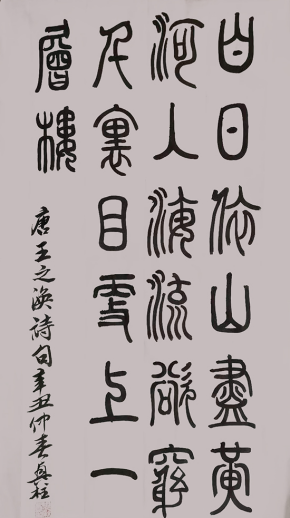 白日依山盡黃
河入海流欲窮
千裏目更上一
層樓
唐王之渙詩句辛丑仲春